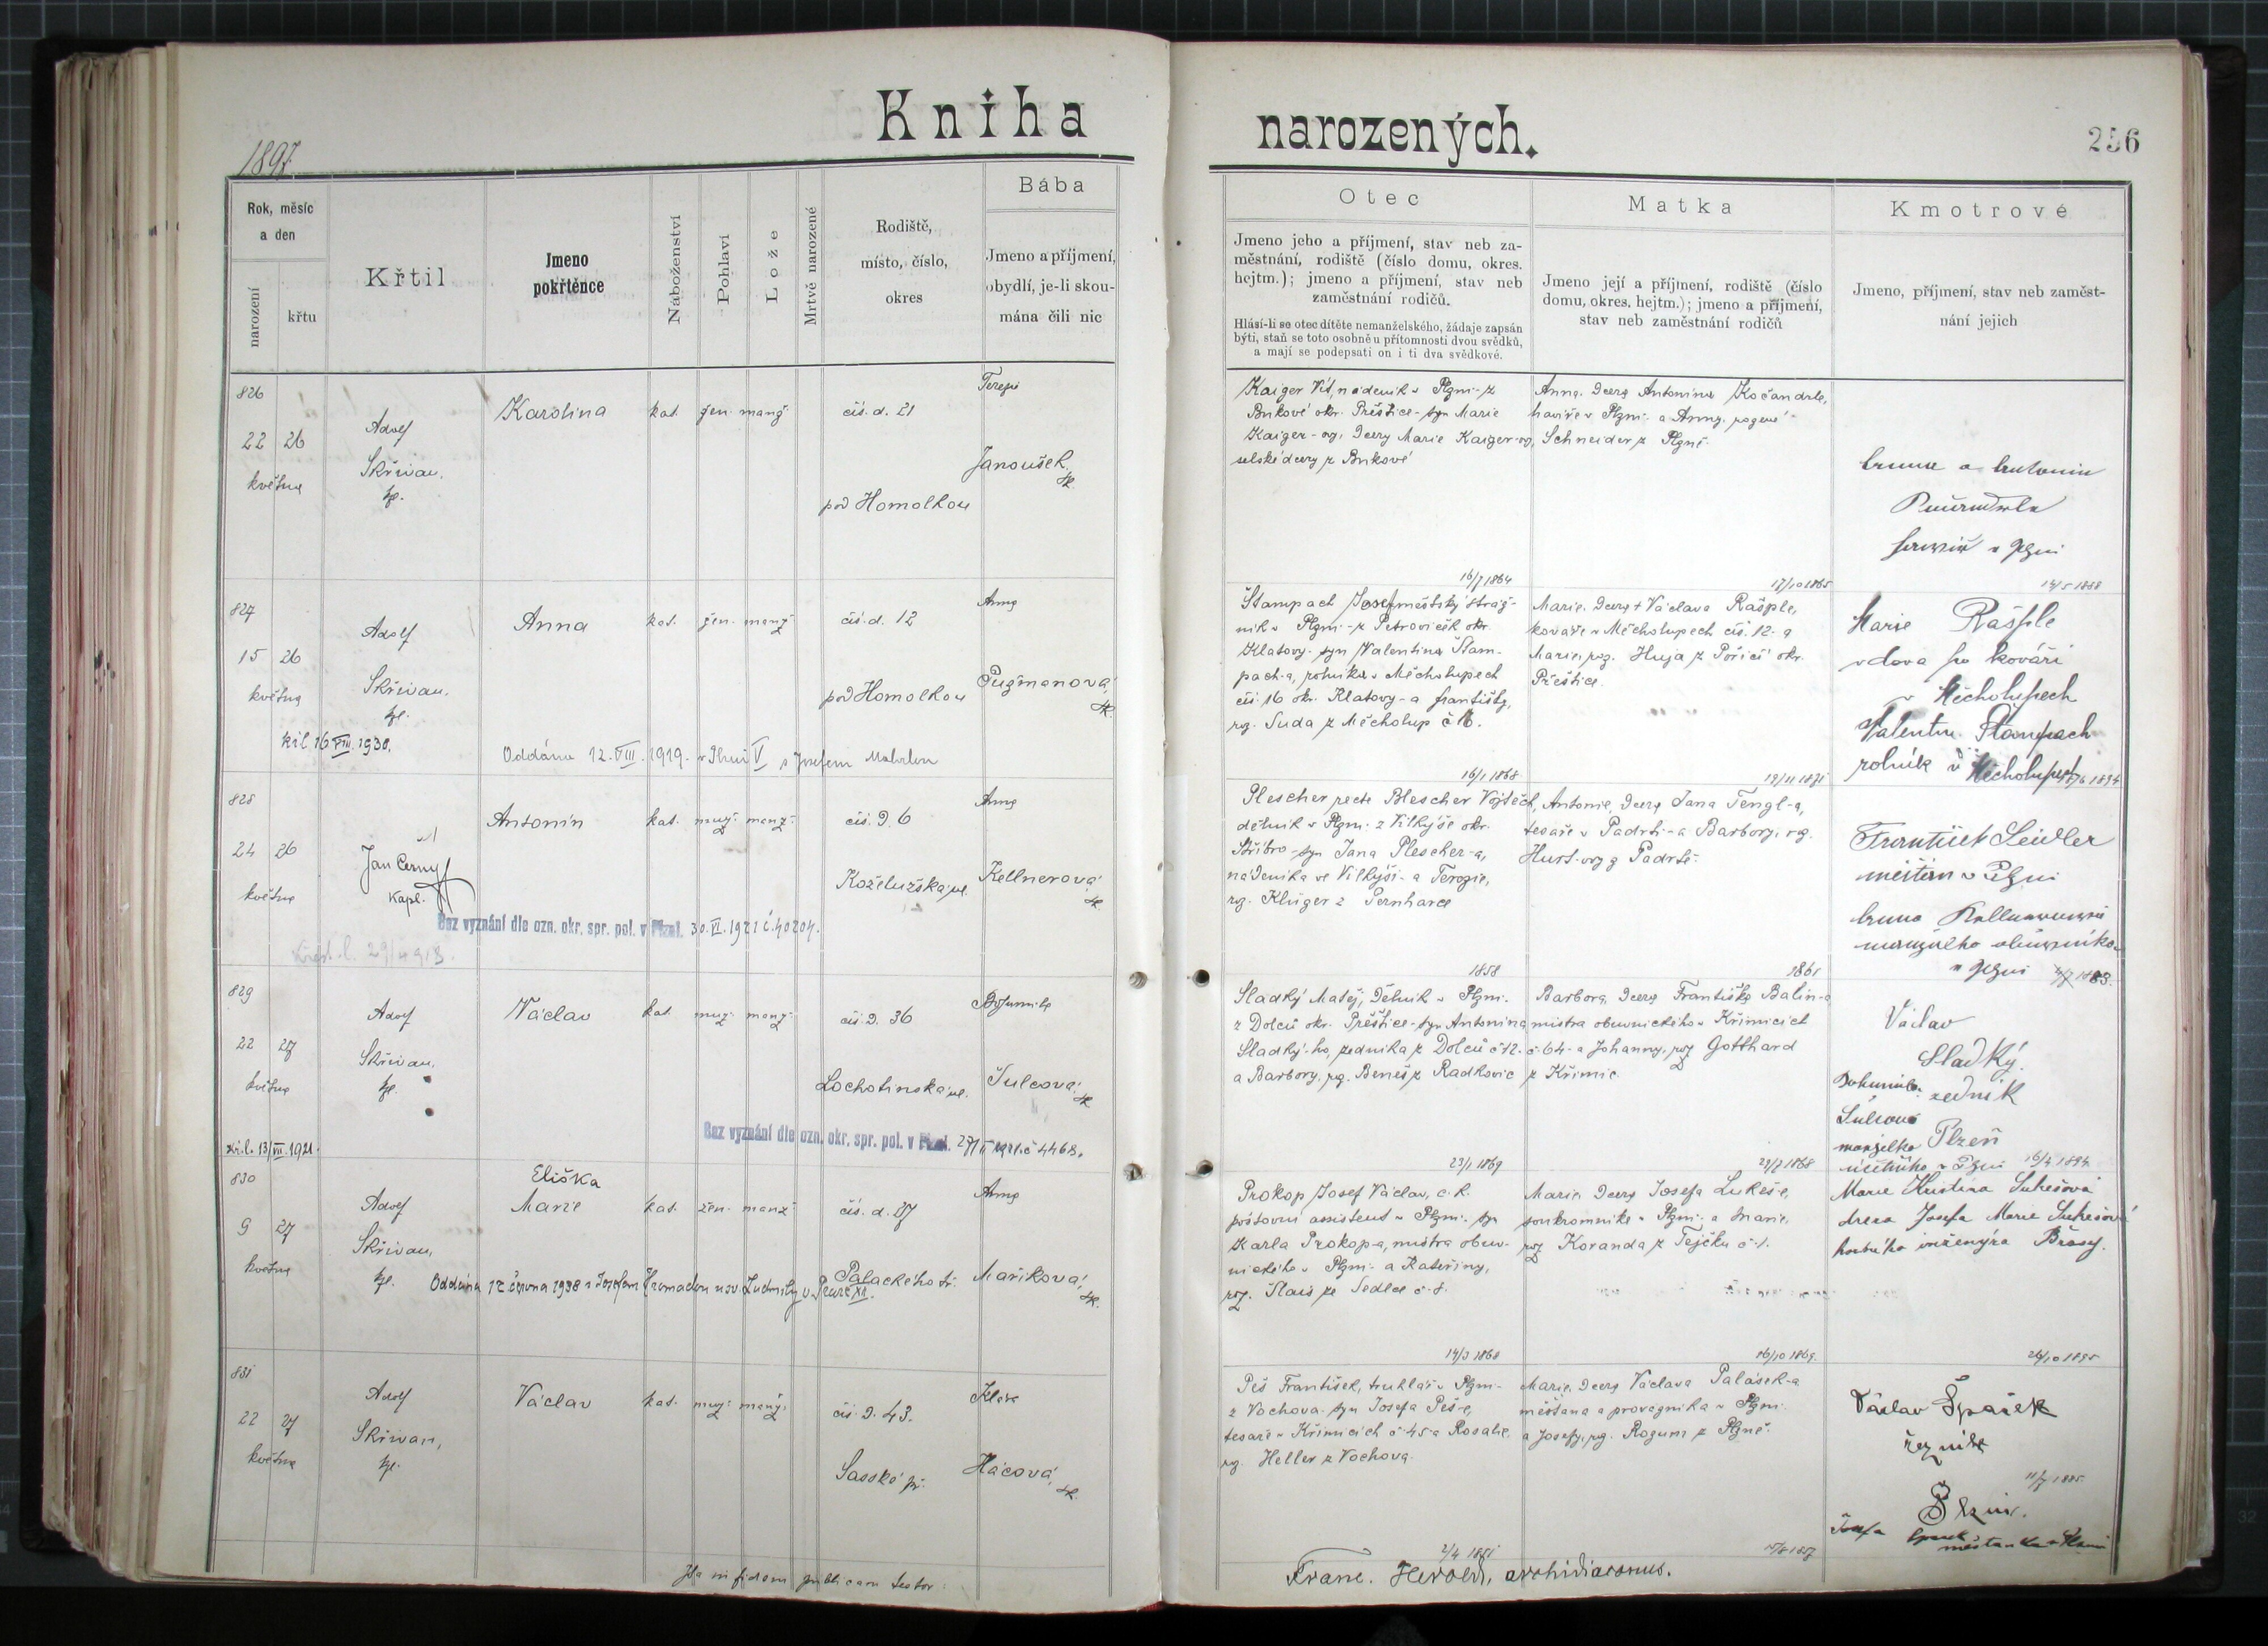 Kniha
narozených.
256
1897
Rok, měsíc
a den
narození
křtu
Křtil
Jmeno
pokřtěnce
Náboženství
Pohlaví
Lože
Mrtvě narozené
Rodiště,
místo, číslo,
okres
Bába
Jmeno a příjmení,
obydlí, je-li skou-
mána čili nic
Otec
Jmeno jeho a příjmení, stav neb za-
městnání, rodiště (číslo domu, okres.
hejtm.); jmeno a příjmení, stav neb
zaměstnání rodičů.
Hlásí-li se otec dítěte nemanželského, žádaje zapsán
býti, staň se toto osobně u přítomnosti dvou svědků,
a mají se podepsati on i ti dva svědkové.
Matka
Jmeno její a příjmení, rodiště (číslo
domu, okres. hejtm.); jmeno a příjmení,
stav neb zaměstnání rodičů
Kmotrové
Jmeno, příjmení, stav neb zaměst-
nání jejich
826
22 26
května
Adolf
Skřivan,
kpl.
Karolina
kat. žen. manž.
čís. d. 21
pod Homolkou
Janoušek
Kaiger Vít, nádeník v Plzni - z
Bukové okr. Přeštice - syn Marie
Kaiger-ov, dcery Marie Kaiger-ov,
selské dcery z Bukové
Anna, dcera Antonína Kočandrle,
havíře v Plzni - a Anny, rozené
Schneider z Plzně.
16/7 1864
17/10 1865
14/5 1888
827
15 26
května
Adolf
Skřivan,
kpl.
Anna
kat. žen. manž.
čís. d. 12
pod Homolkou
Anna
16 VIII. 1930.
Oddána 12. VIII. 1919. v Plzni V s Josefem
Štampach Josef, městský stráž-
ník v Plzni - z Petroviček okr.
Klatovy - syn Valentina Štam-
pach-a, rolníka v Měcholupech
čís. 16 okr. Klatovy - a Františky,
roz. Suda z Měcholup č. 16.
Marie, dcera + Václava Rašple,
kováře v Měcholupech čís. 12 - a
Marie, roz. Huja z Poříčí okr.
Přeštice.
Marie Rašple
vdova po kováři
v Měcholupech
Valentin Štampach
rolník v Měcholupech
16/1 1868
19/11 1871
828
24 26
května
Jan Černý
kapl.
Antonín
kat. muž. manž.
čís. d. 6
Koželužská ul.
Anna
Kellnerová
Bez vyznání dle ozn. okr. spr. pol. v Plzni. 30. VI. 1921 č. 40204.
Plescher recte Blescher Vojtěch,
dělník v Plzni - z Vilkýše okr.
Stříbro - syn Jana Plescher-a,
nádeníka ve Vilkýši - a Terezie,
roz. Klüger z Pernharce
Antonie, dcera Jana Tengl-a,
tesaře v Padrti - a Barbory, roz.
Hurt-ovy z Padrtě.
František Seidler
v Plzni
v Plzni
1858
1861
829
22 27
května
Adolf
Skřivan,
kpl.
Václav
kat. muž. manž.
čís. d. 36
Lochotinská ul.
Bohumila
Šulcová
13/VII. 1921.
Bez vyznání dle ozn. okr. spr. pol. v Plzni. 27/II 1921 č 4468.
Sladký Matěj, dělník v Plzni -
z Dolců okr. Přeštice - syn Antonína
Sladký-ho, zedníka z Dolců č 12 -
a Barbory, roz. Beneš z Radkovic
Barbora, dcera Františka Balín-a
mistra obuvnického v Křimicích
č. 64 - a Johanny, roz. Gotthard
z Křimic.
Václav
Sladký.
zedník
Plzeň
Bohumila
Šulcová
manželka
v Plzni 16/4 1894
23/1 1869
23/7 1868
830
9 27
května
Adolf
Skřivan,
kpl.
Eliška
Marie
kat. žen. manž.
čís. d. 27
Palackého tř.
Anna
Maříková
Oddána 12. června 1938 s Josefem Hromadou u sv. Ludmily v Praze XII.
Prokop Josef Václav, c. k.
poštovní assistent v Plzni - syn
Karla Prokop-a, mistra obuv-
nického v Plzni - a Kateřiny,
roz. Slais ze Sedlce č. 8.
Marie, dcera Josefa Lukeše,
soukromníka v Plzni - a Marie,
roz. Koranda z Tejčku č. 1.
Marie Kristina Lukešová
dcera Josefa Marie Lukešová
14/3 1868
16/10 1869.
26/10 1895
831
22 27
května
Adolf
Skřivan,
kpl.
Václav
kat. muž. manž.
čís. d. 43.
Saské př.
Hácová
Peš František, truhlář v Plzni -
z Vochova - syn Josefa Peš-e,
tesaře v Křimicích č. 45 - a Rosalie,
roz. Heller z Vochova.
Marie, dcera Václava Palásek-a
měšťana a provazníka v Plzni
a Josefy, roz. Rogum z Plzně.
Václav Špaček
řezník
Plzni.
2/4 1851
Ita in fidem publicam testor:
Franc. Herold, archidiaconus.